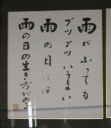 雨がふっても
ブツブツいうまい
雨の日には
雨の日の生き方がある